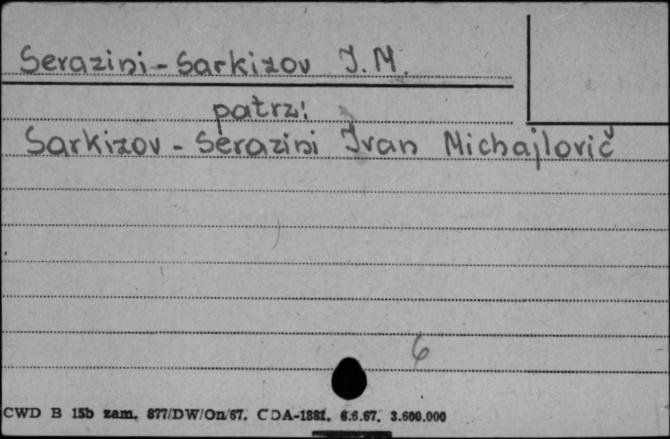 Serazini-Sarkizov I.M.
patrz:
Sarkizov - Serazini Ivan Michajlovič
6
CWD B 15b zam. 877/DW/On/67. CDA-1881. 6.6.67. 3.600.000